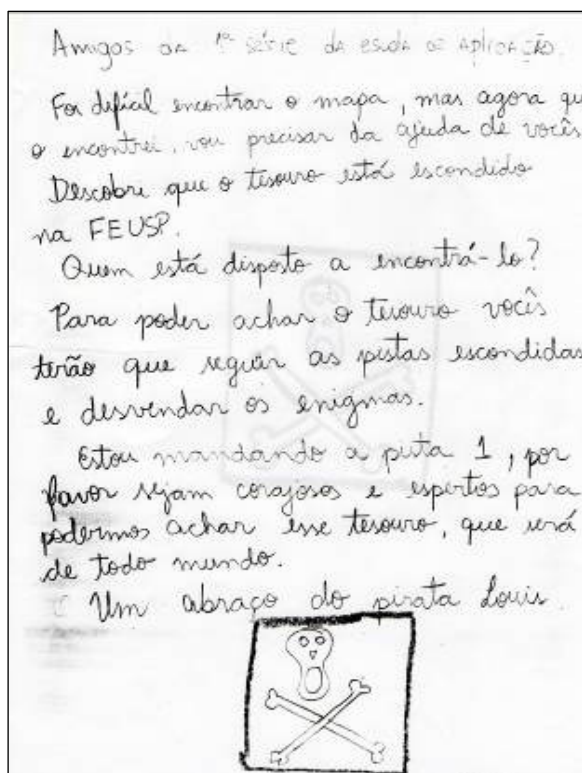 Amigos da 1ª série da escola de APLICAÇÃO.
Foi difícil encontrar o mapa, mas agora qu
o encontrei, vou precisar da ajuda de vocês
Descobri que o tesouro está escondido
na FEUSP.
Quem está disposto a encontrá-lo?
Para poder achar o tesouro vocês
terão que seguir as pistas escondidas
e desvendar os enigmas.
Estou mandando a pista 1, por
favor sejam corajosos e espertos para
podermos achar esse tesouro, que será
de todo mundo.
Um abraço do pirata Louis.